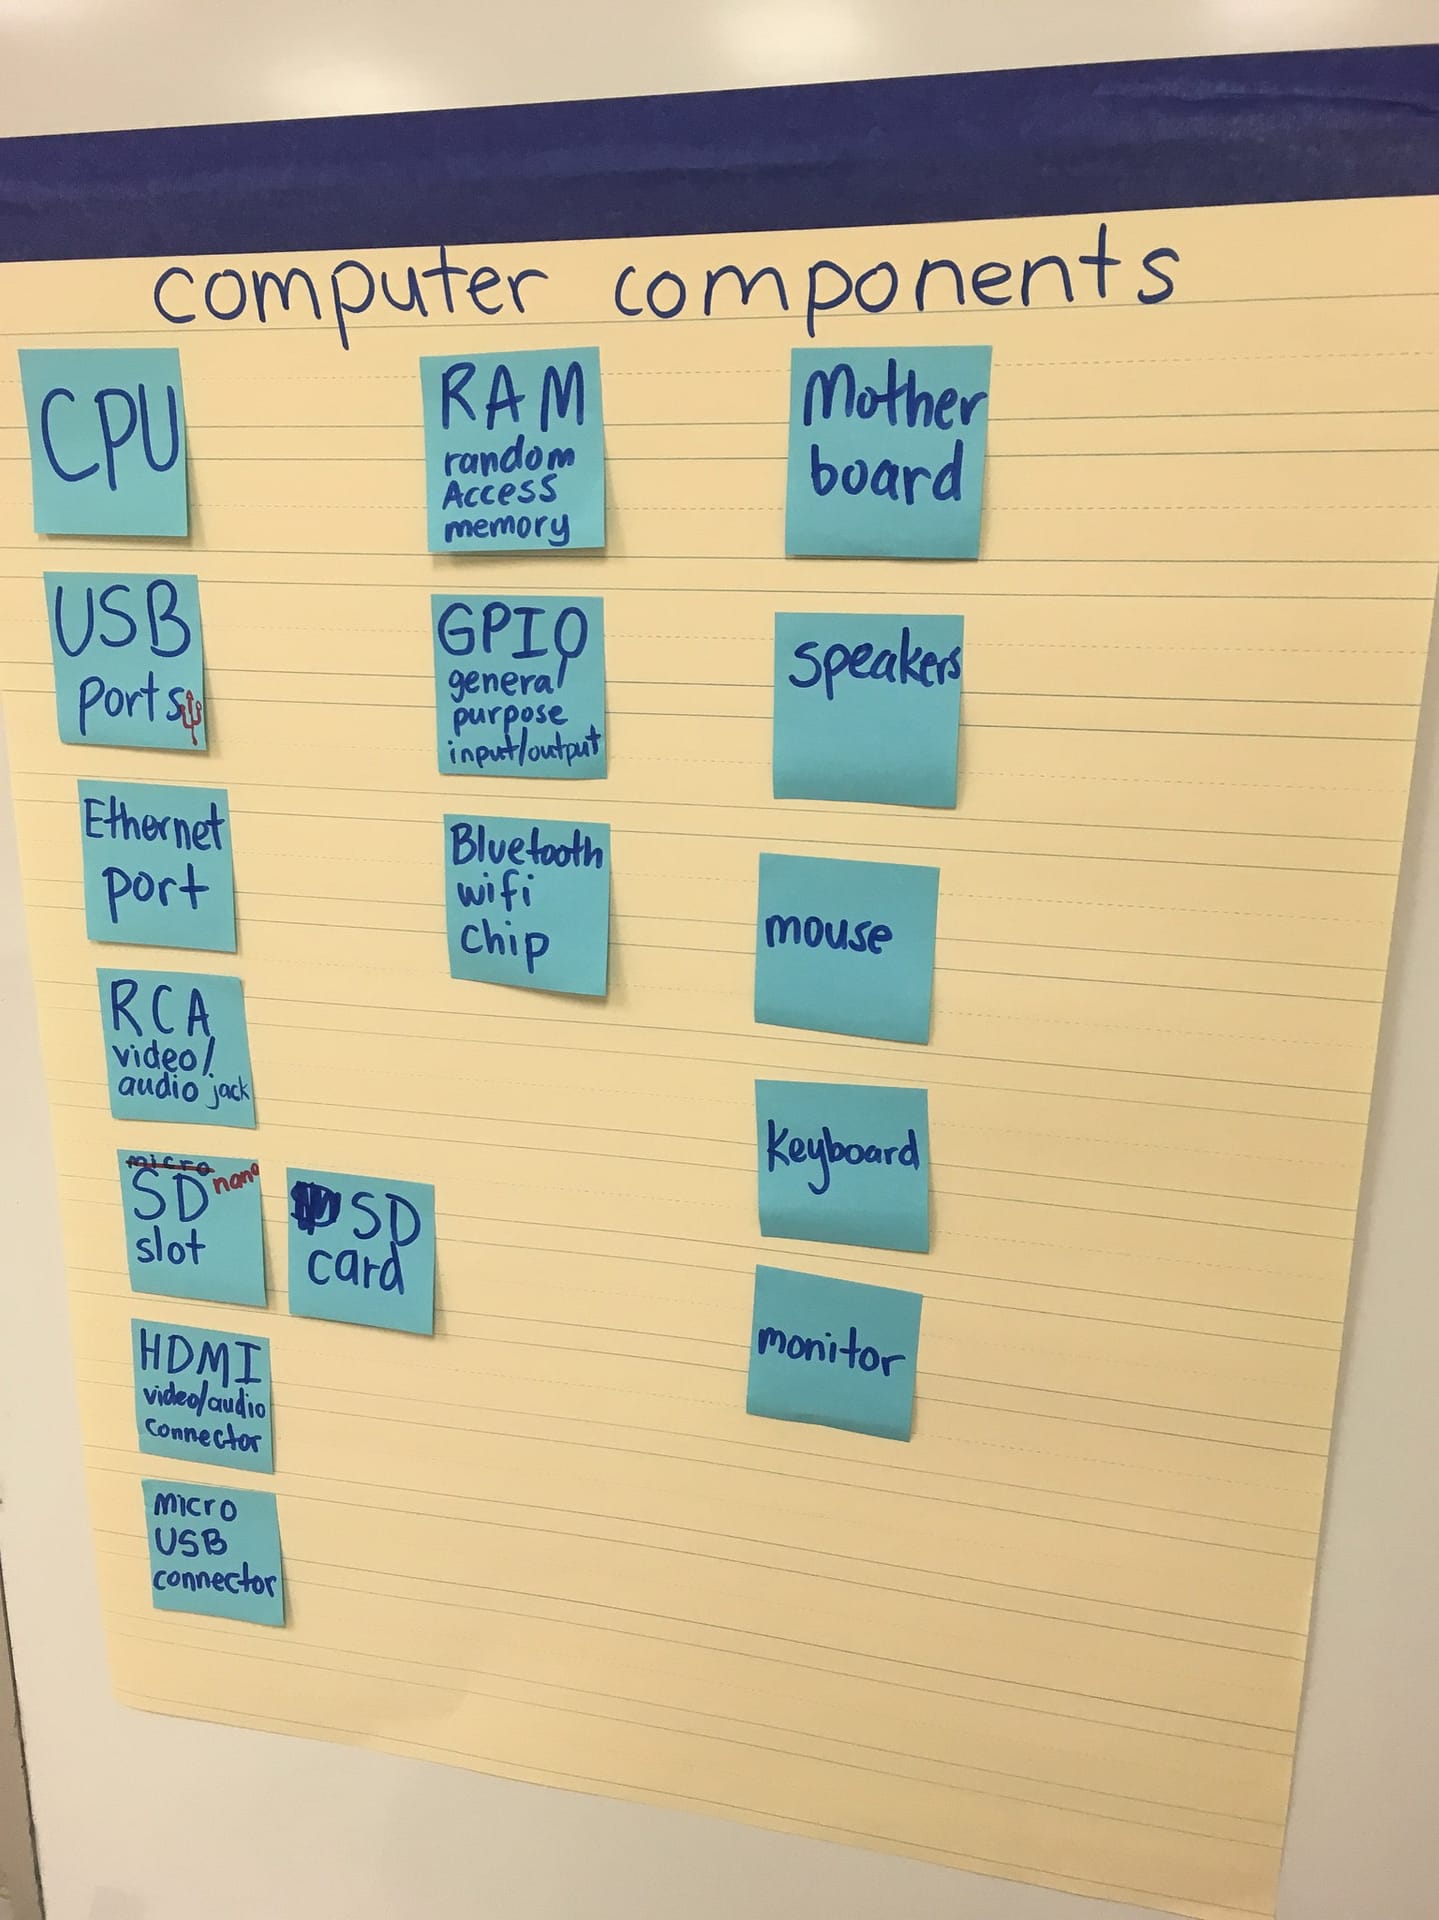 computer components
CPU
USB
ports
Ethernet
port
RCA
video/
audio jack
micro
nano
SD
slot
SD
card
HDMI
video/audio
connector
micro
USB
connector
RAM
random
Access
memory
GPIO
general
purpose
input/output
Bluetooth
wifi
chip
Mother
board
speakers
mouse
keyboard
monitor